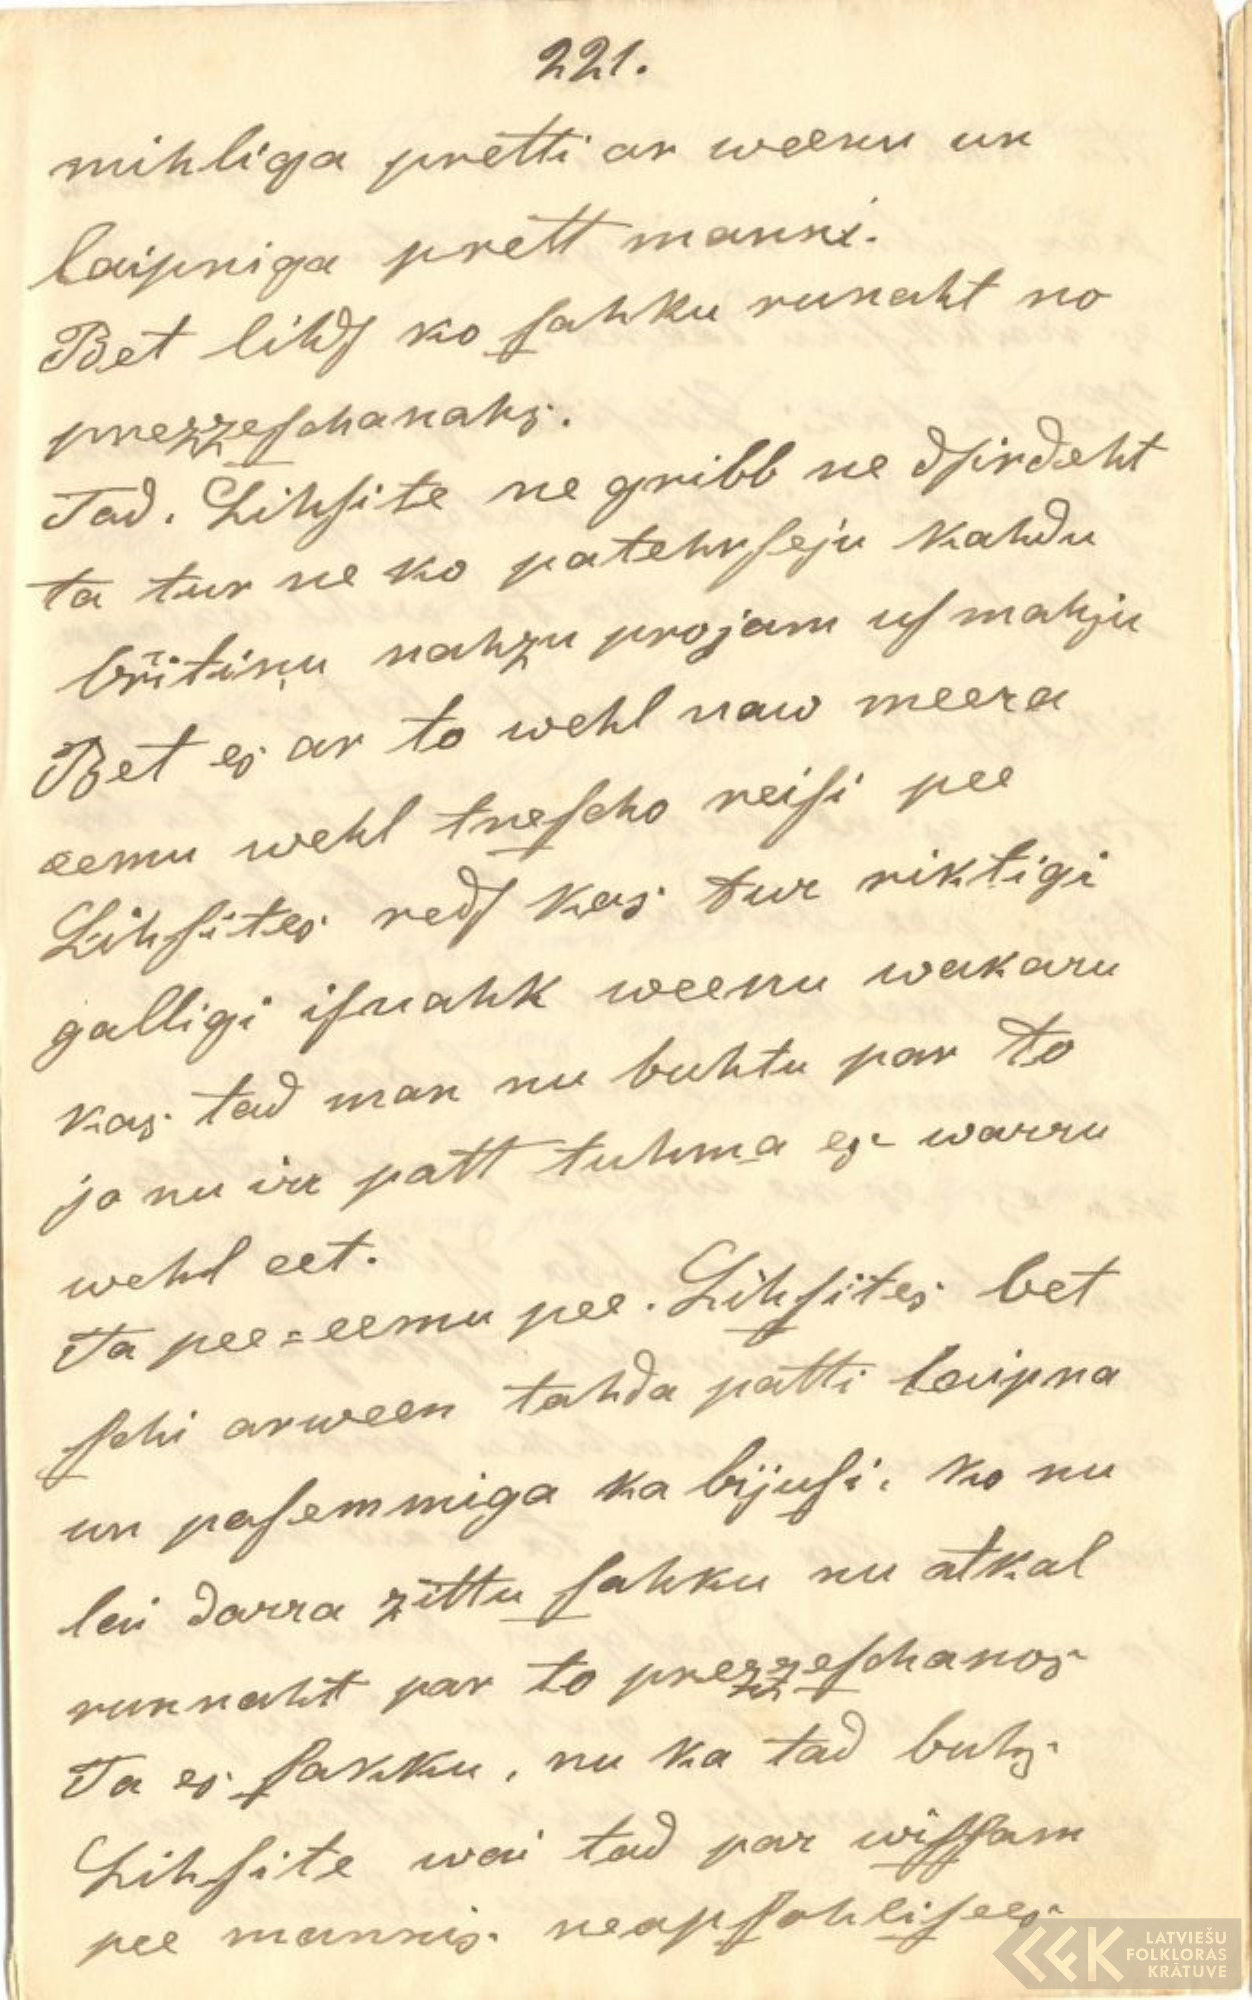 221.
mihliga pretti ar weenu un
laipniga prett manni.
Bet lihdſ ko ſahku runaht no
prezzeſchanahs.
Tad. Lihſite ne gribb ne dſirdeht
ta tur ne ko patehrſeju kahdu
britiņu nahzu projam uſ mahju
Bet es ar to wehl naw meera
eemu wehl treſcho reiſi pee
Lihſites redſ kas tur riktigi
galligi iſnahk weenu wakaru
kas tad man nu buhtu par to
jo nu irr patt tuhma es warru
wehl eet.
Ta pee=eemu pee. Lihſites bet
ſchi arween tahda patti laipna
un paſemmiga ka bijuſi, ko nu
lai darra zittu ſahku nu atkal
runnaht par to prezzeſchanos
Ta es ſakku, nu ka tad buhs
Lihſite wai tad par wiſſam
pee mannis neapſohliſees
LATVIEŠU
FOLKLORAS
KRĀTUVE